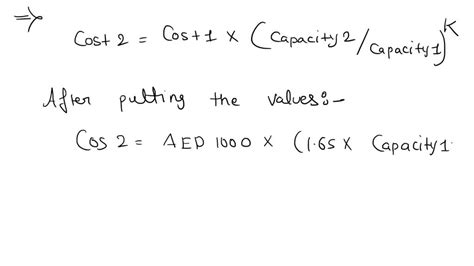 ⇒ Cost 2 = Cost 1 × (Capacity2/Capacity1)^K
After putting the values:-
Cos 2 = AED 1000 × (1.65 × Capacity1